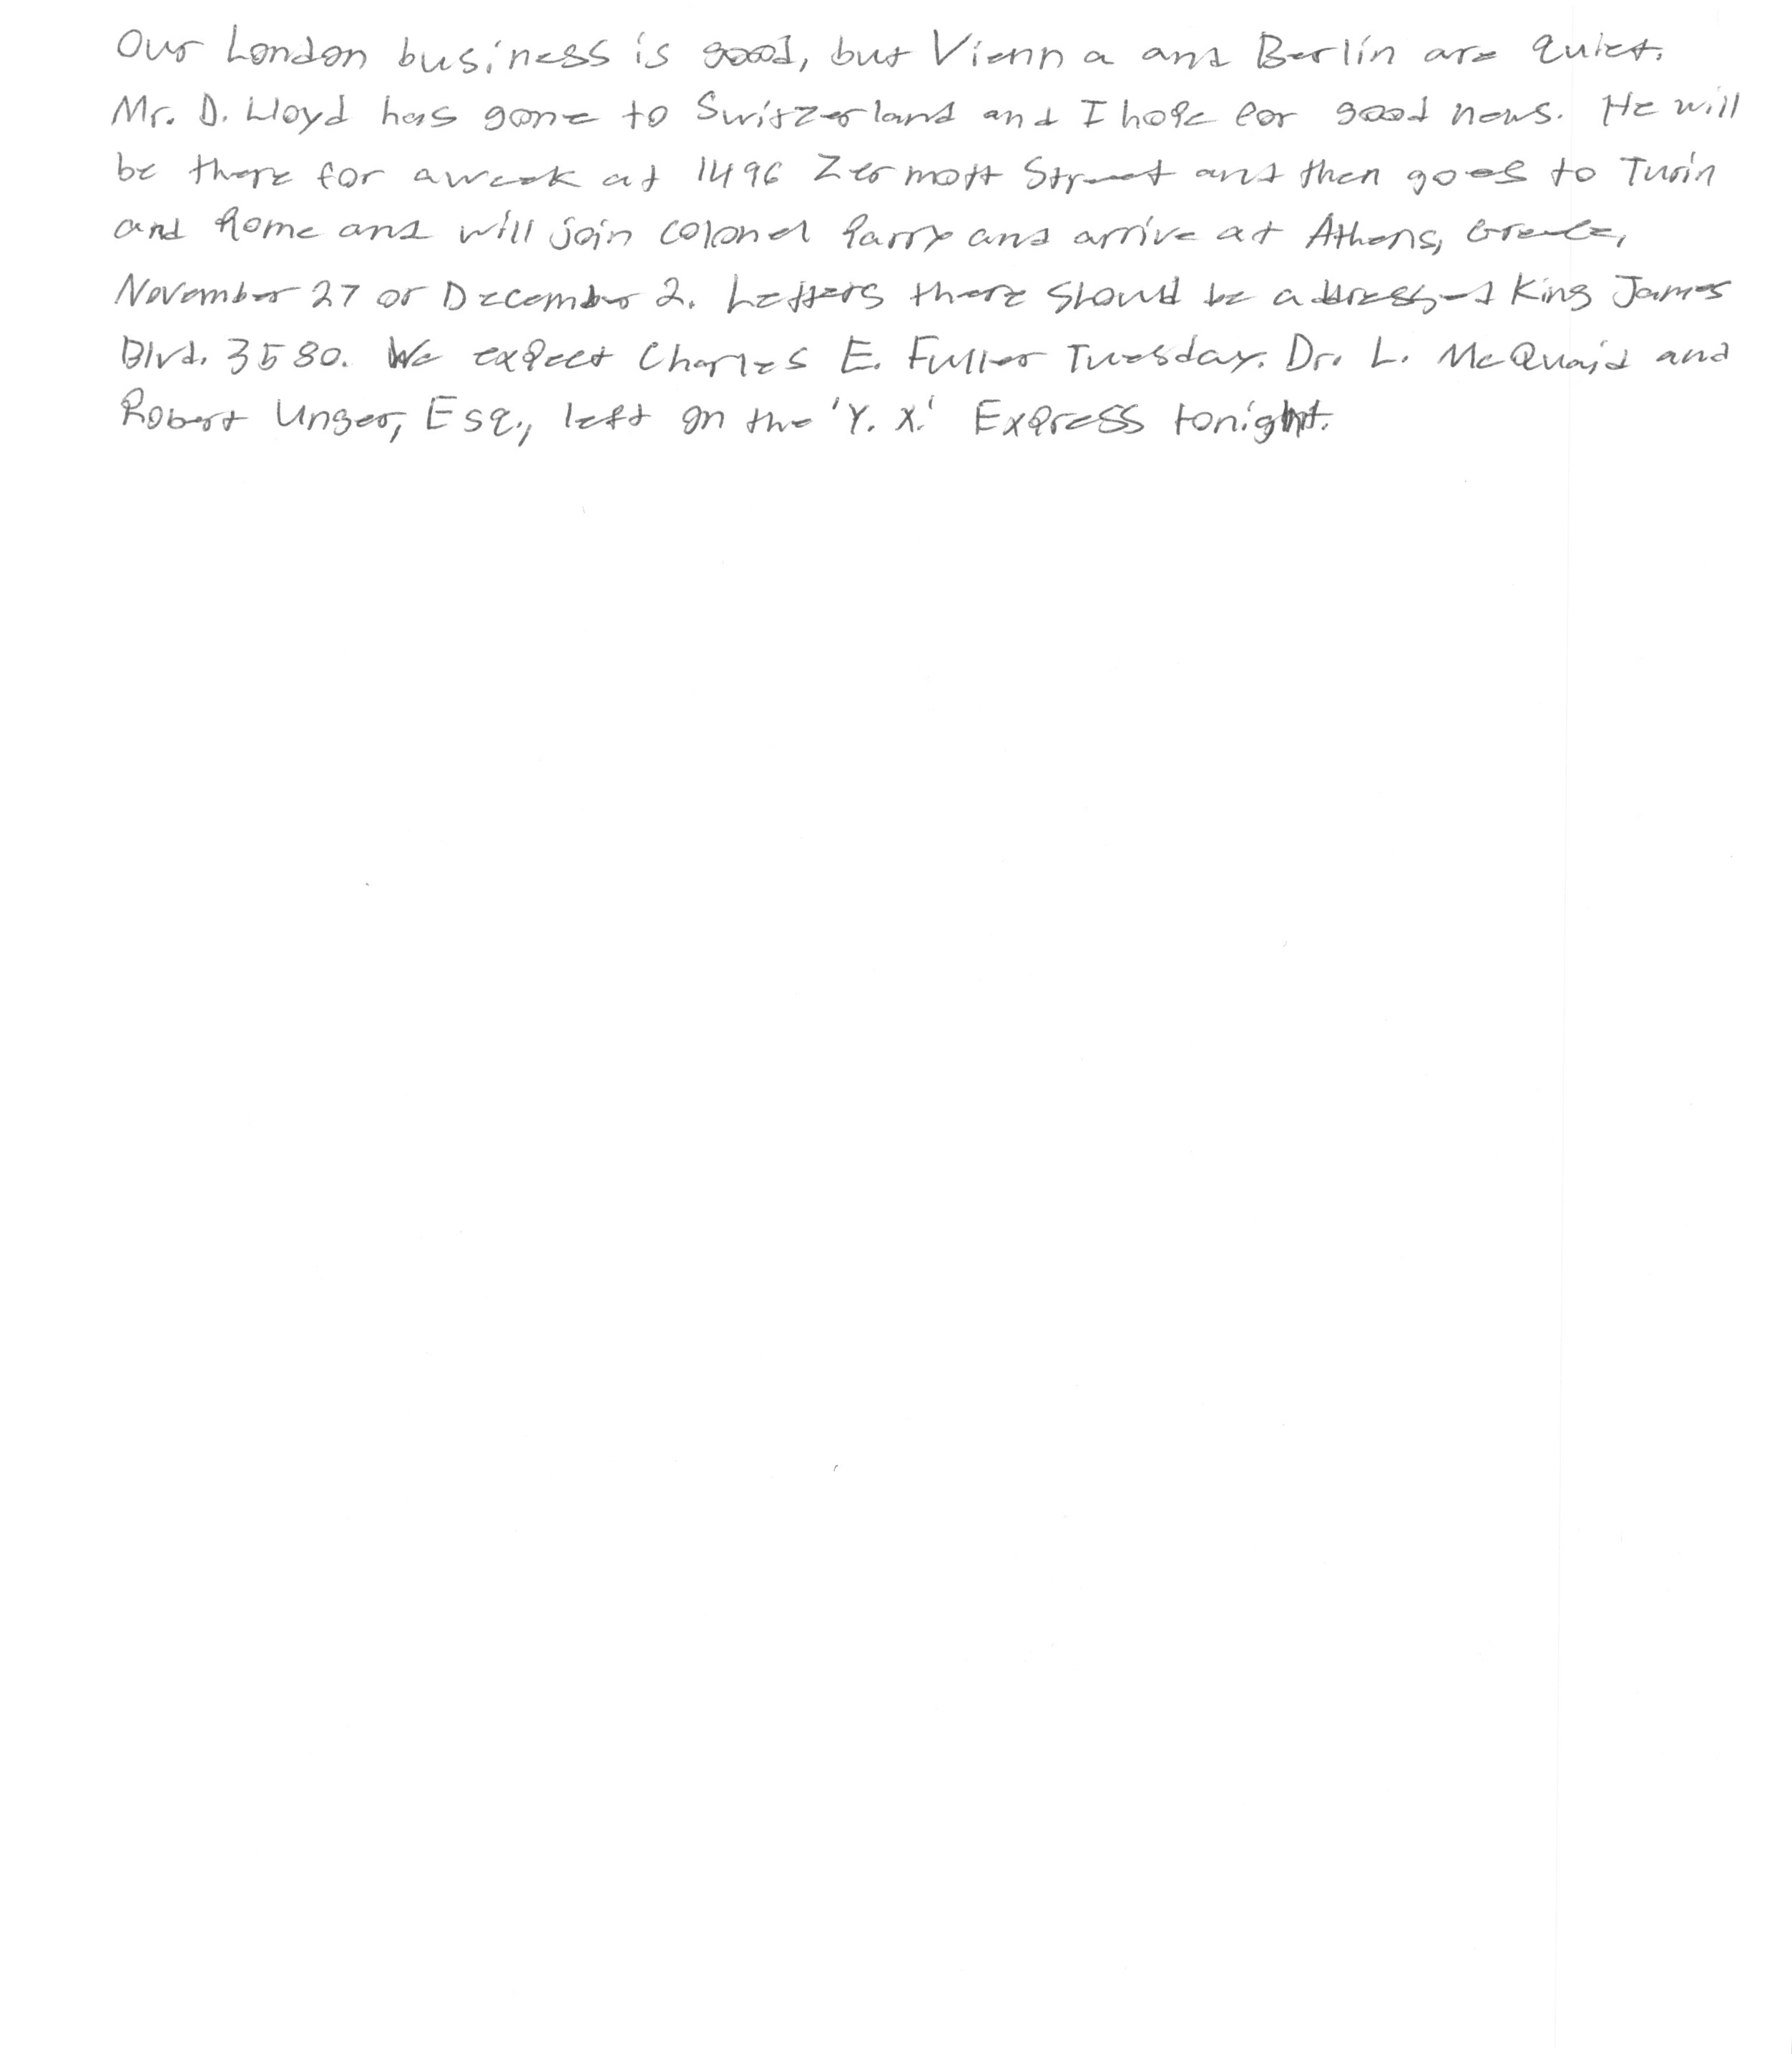 Our London business is good, but Vienna and Berlin are quiet.
Mr. D. Lloyd has gone to Switzerland and I hope for good news. He will
be there for a week at 1496 Zermott Street and then goes to Turin
and Rome and will join Colonel Parry and arrive at Athens, Greece,
November 27 or December 2. Letters there should be addressed King James
Blvd. 3580. We expect Charles E. Fuller Tuesday. Dr. L. McQuaid and
Robert Unger, Esq., left on the 'Y. X.' Express tonight.